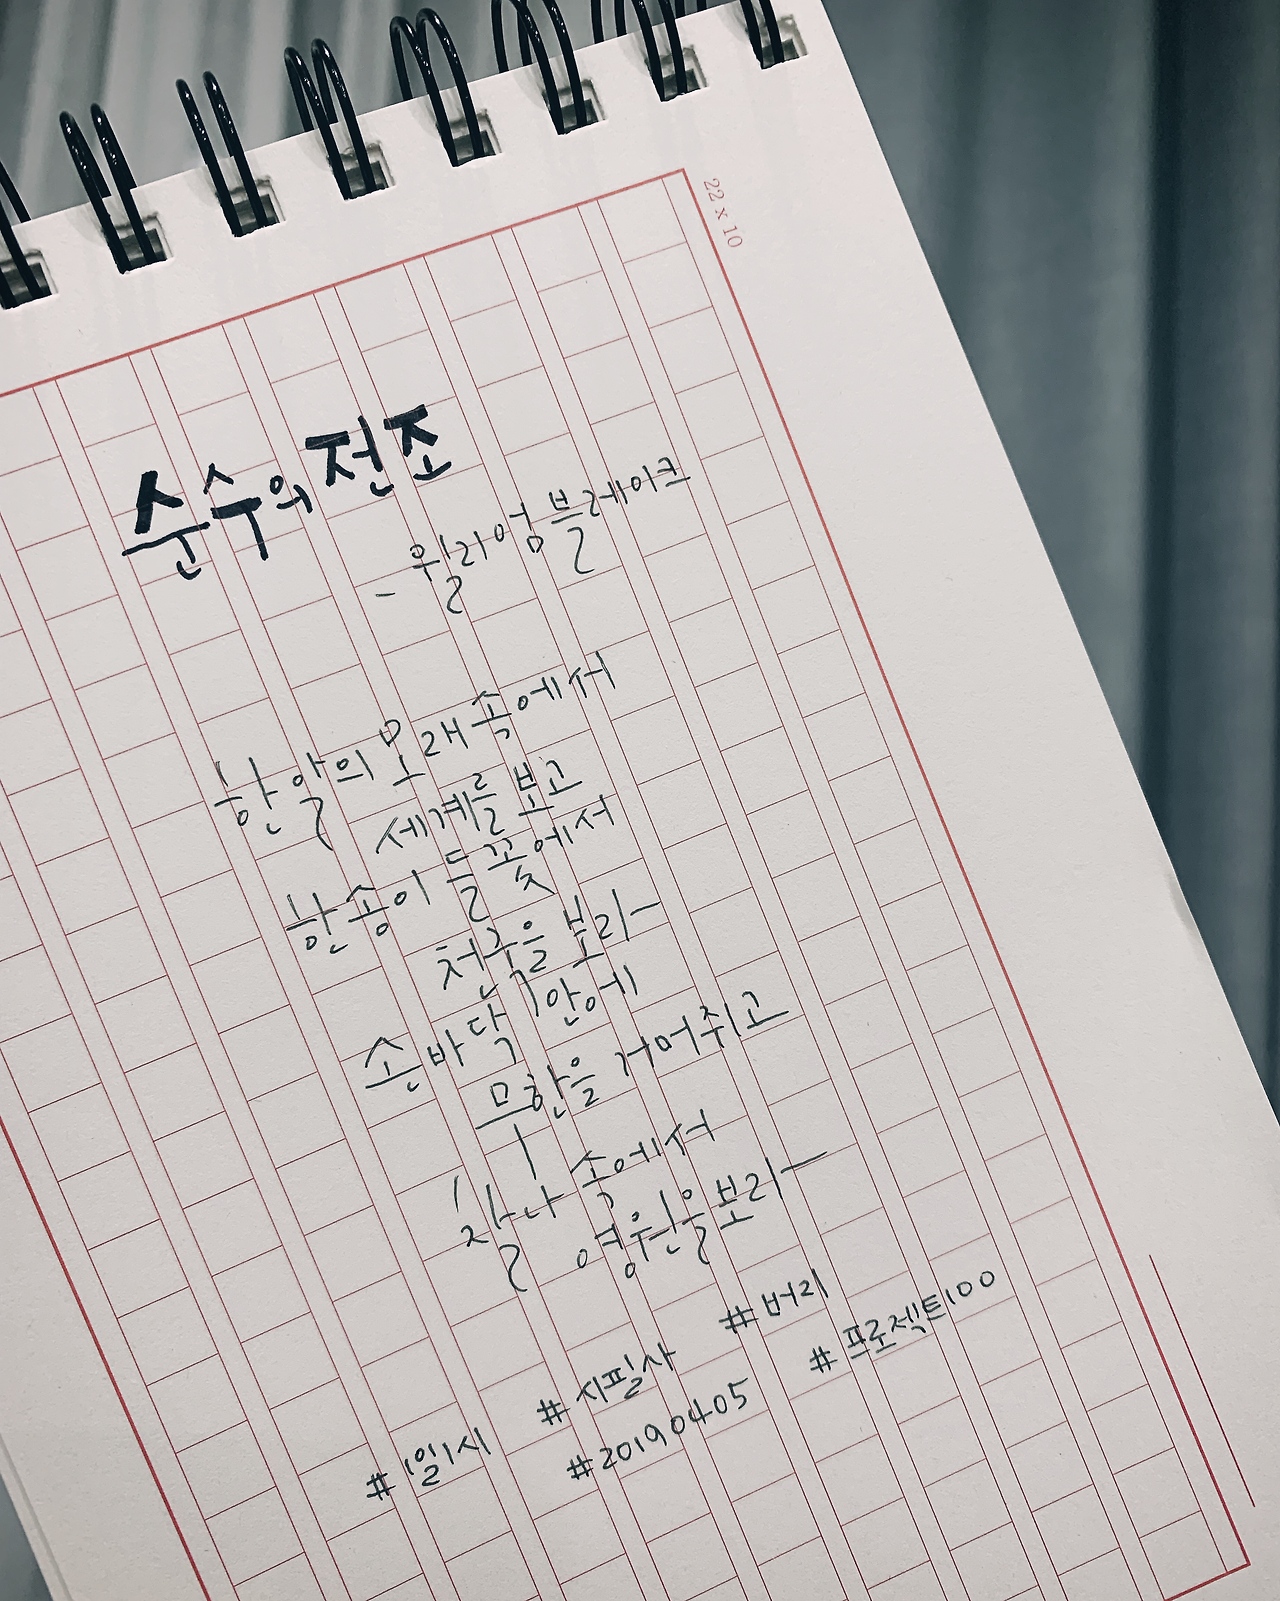 22 x 10
순수의 전조
- 윌리엄 블레이크
한 알의 모래 속에서
세계를 보고
한 송이 들꽃에서
천국을 보라-
손바닥 안에
무한을 거머쥐고
찰나 속에서
영원을 보라-
#버리
#시필사 #프로젝트100
#1일1시 #20190405